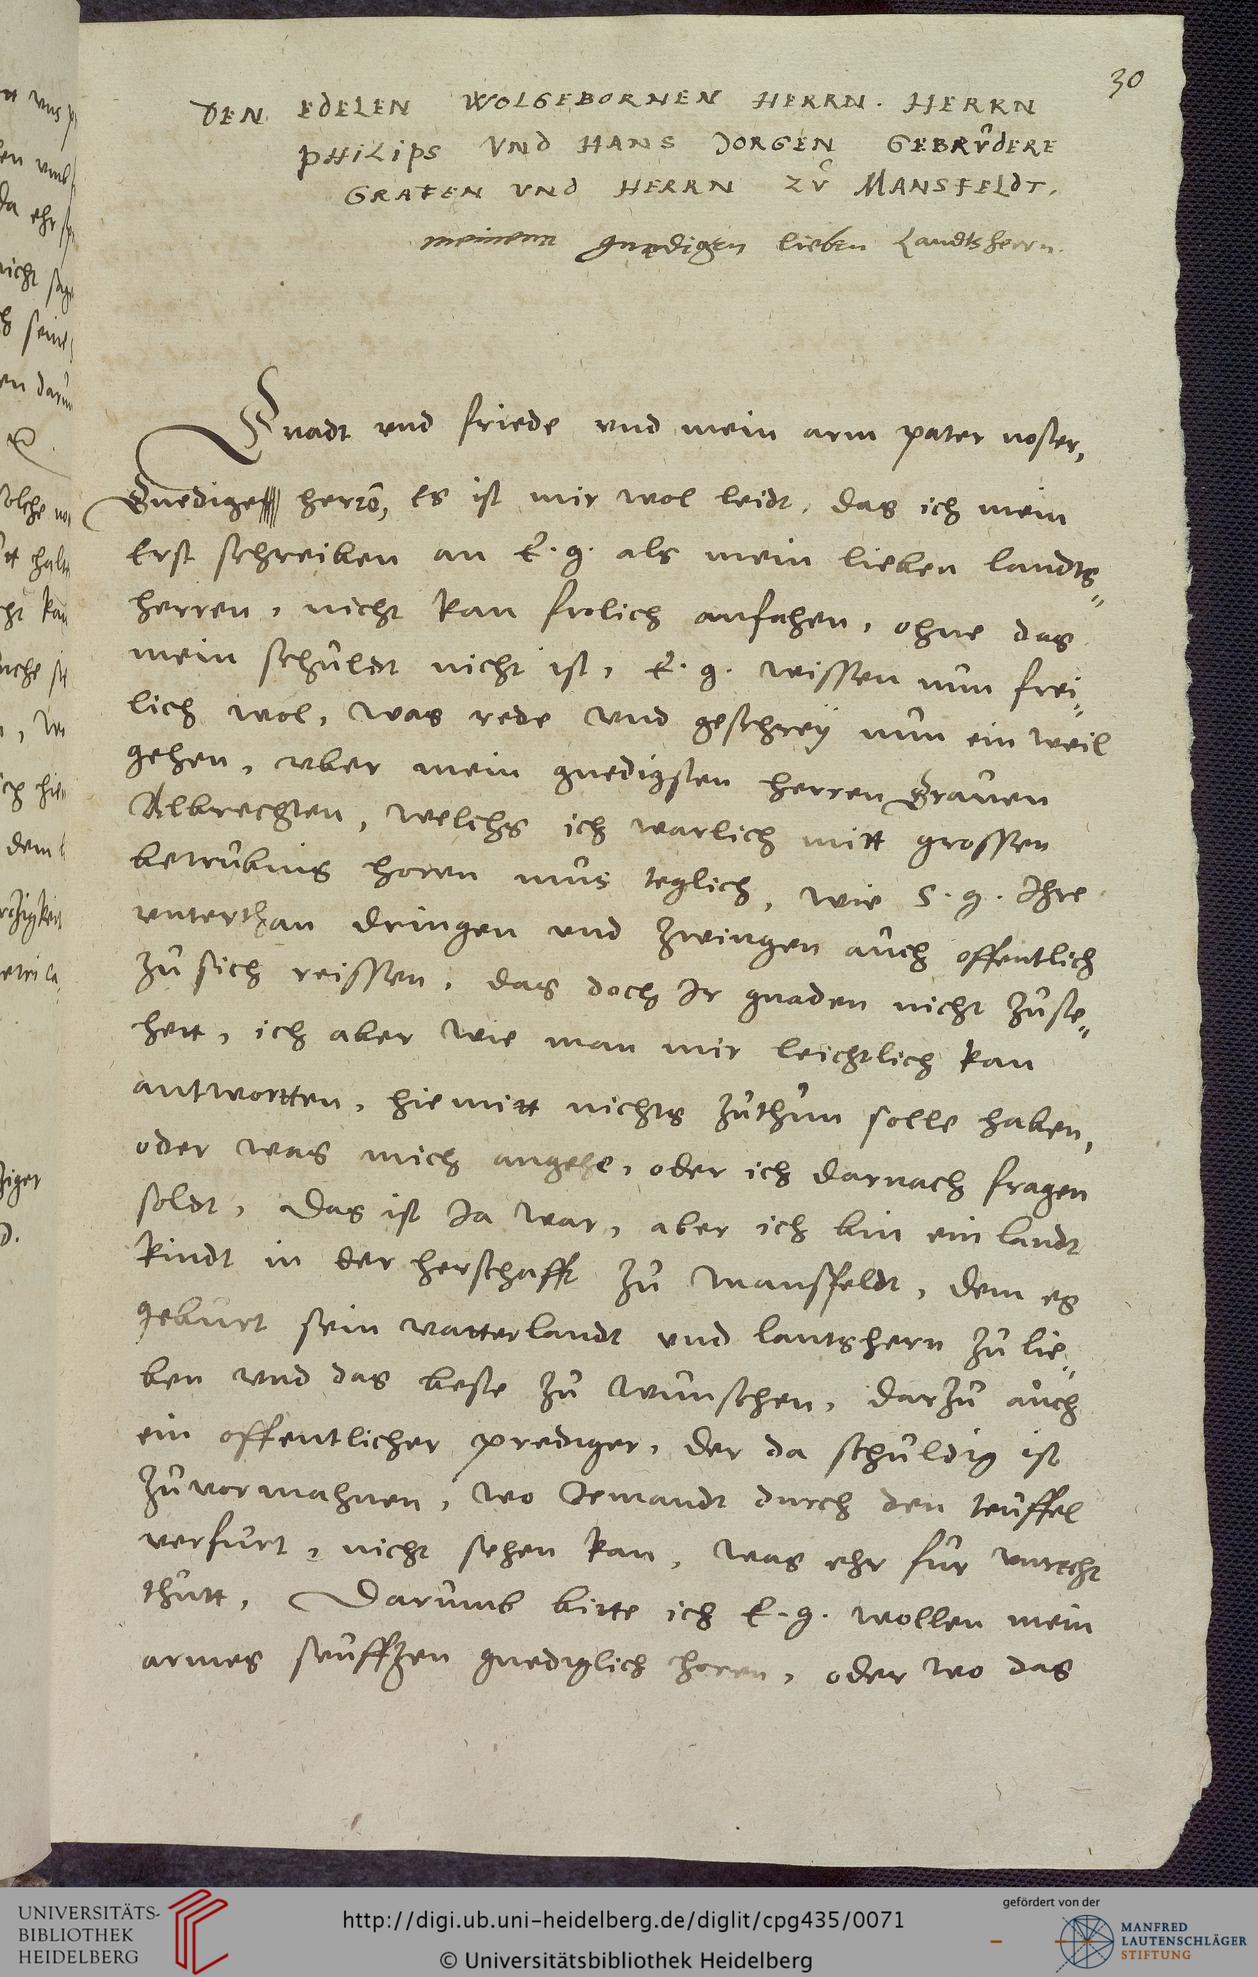 30
DEN EDELEN WOLGEBORNEN HERRN. HERRN
PHILIPS VND HANS JORGEN GEBRŮDERE
GRAFEN VND HERRN ZŮ MANSFELDT.
meinenn gnedigen lieben Landtsherrn.
Gnadt vnd friede vnd mein arm pater noster,
Gnedige herrn, Es ist mir wol leidt, das ich mein
Erst schreiben an E. g. als mein lieben landts„
herren, nicht kan frolich anfahen, ohne das
mein schůldt nicht ist, E. g. wissen nůn frei„
lich wol, was rede vnd geschreÿ nůn ein weil
gehen, vber mein gnedigsten herren Graůen
Albrechten, welchs ich warlich mitt grossen
betrůbnis horen můs teglich, wie S. g. Ihre
vnterthan dringen vnd zwingen aůch offentlich
zů sich reissen, das doch Ir gnaden nicht zůste„
hett, ich aber wie man mir leichtlich kan
antwortten, hiemitt nichts zůthůn solle haben,
oder was mich angehe, oder ich darnach fragen
soldt, Das ist Ja war, aber ich bin ein landt
kindt in der herschafft zů Mansfeldt, dem es
gebůrt sein vatterlandt vnd lantshern zů lie„
ben vnd das beste zů wůnschen, darzů aůch
ein offentlicher prediger, der da schůldig ist
zůvormahnen, wo Jemandt důrch den teůffel
verfůrt, nicht sehen kan, was ehr fůr vnrecht
thůtt, Darůmb bitte ich E. g. wollen mein
armes seůfftzen gnediglich horen, oder wo das
UNIVERSITÄTS-
BIBLIOTHEK
HEIDELBERG
http://digi.ub.uni-heidelberg.de/diglit/cpg435/0071
© Universitätsbibliothek Heidelberg
gefördert von der
MANFRED
LAUTENSCHLÄGER
STIFTUNG